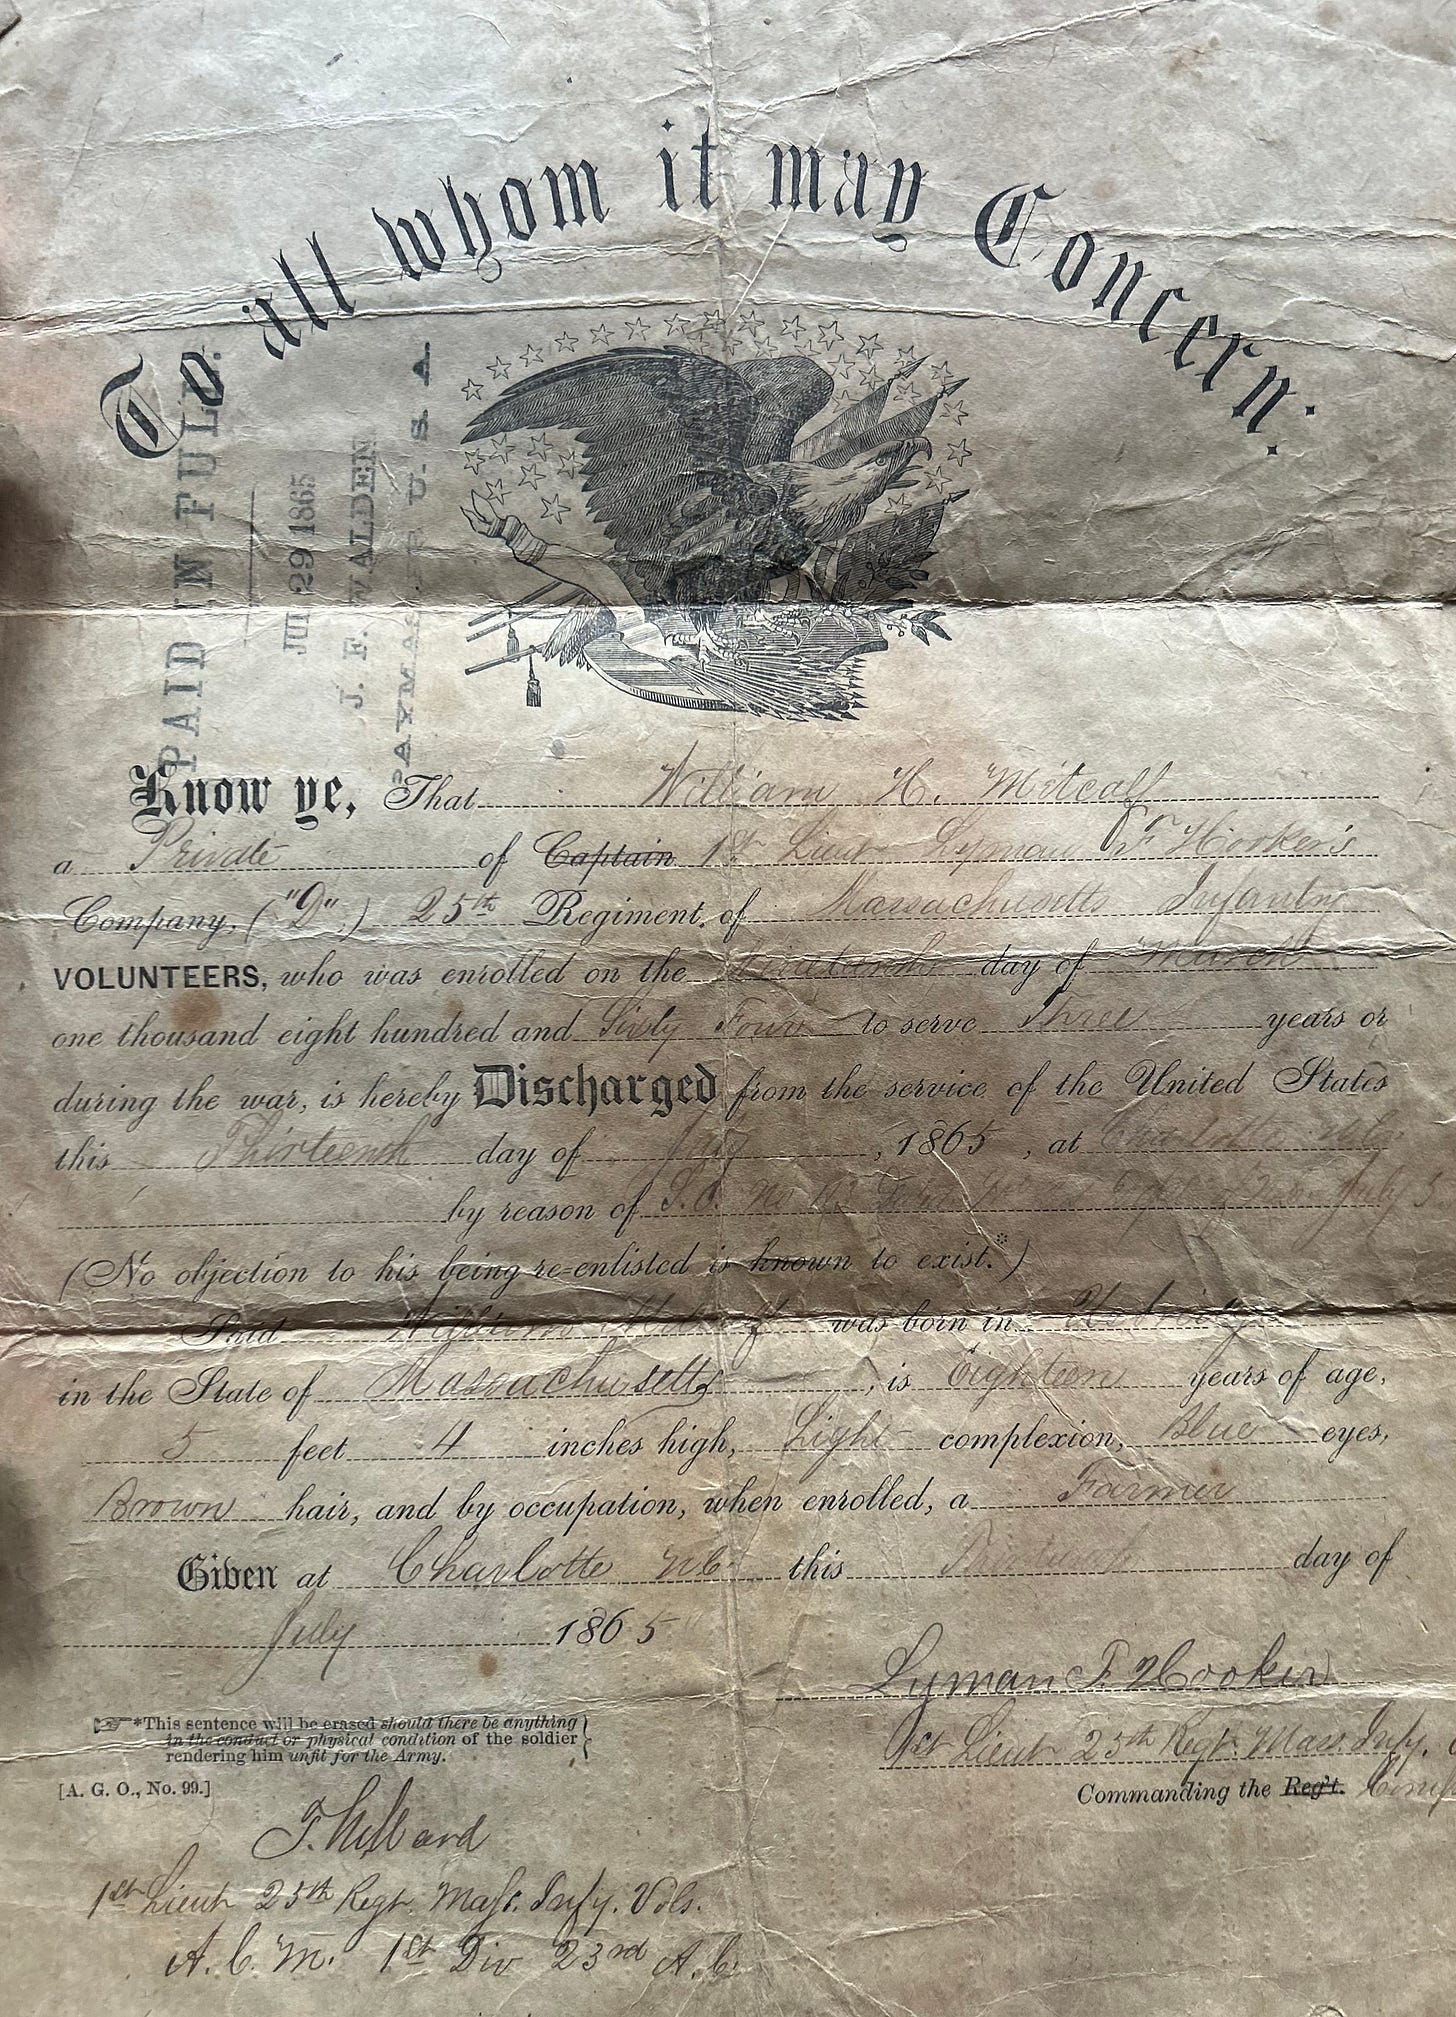 To all whom it may Concern:
PAID IN FULL.
JUL 29 1865
J. F. WALDEN
U. S. A
Know ye, That William H. Metcalf
a Private of Captain 1st Lieut Lyman F Hooker's
Company, ("D",) 25th Regiment of Massachusetts Infantry
VOLUNTEERS, who was enrolled on the day of March
one thousand eight hundred and Sixty Four to serve Three years or
during the war, is hereby Discharged from the service of the United States
this Thirteenth day of July, 1865, at Charlotte NC
by reason of S.O. No July 5
(No objection to his being re-enlisted is known to exist.*)
Said William Metcalf was born in
in the State of Massachusetts, is Eighteen years of age,
5 feet 4 inches high, Light complexion, Blue eyes,
Brown hair, and by occupation, when enrolled, a Farmer
Given at Charlotte NC this Thirteenth day of
July 1865
Lyman F. Hooker
1st Lieut 25th Regt. Mass. Infy.
Commanding the Reg't.
*This sentence will be erased should there be anything
in the conduct or physical condition of the soldier
rendering him unfit for the Army.
[A. G. O., No. 99.]
1st Lieut 25th Regt. Mass. Infy. Vols.
A. C. M. 1st Div 23rd A. C.